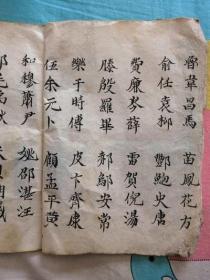 魯韋昌馬 苗鳳花方
俞任袁柳 酆鮑史唐
費廉岑薛 雷賀倪湯
滕殷羅畢 郝鄔安常
樂于時傅 皮卞齊康
伍余元卜 顧孟平黃
和穆蕭尹 姚邵湛汪
祁毛禹狄 米貝明臧